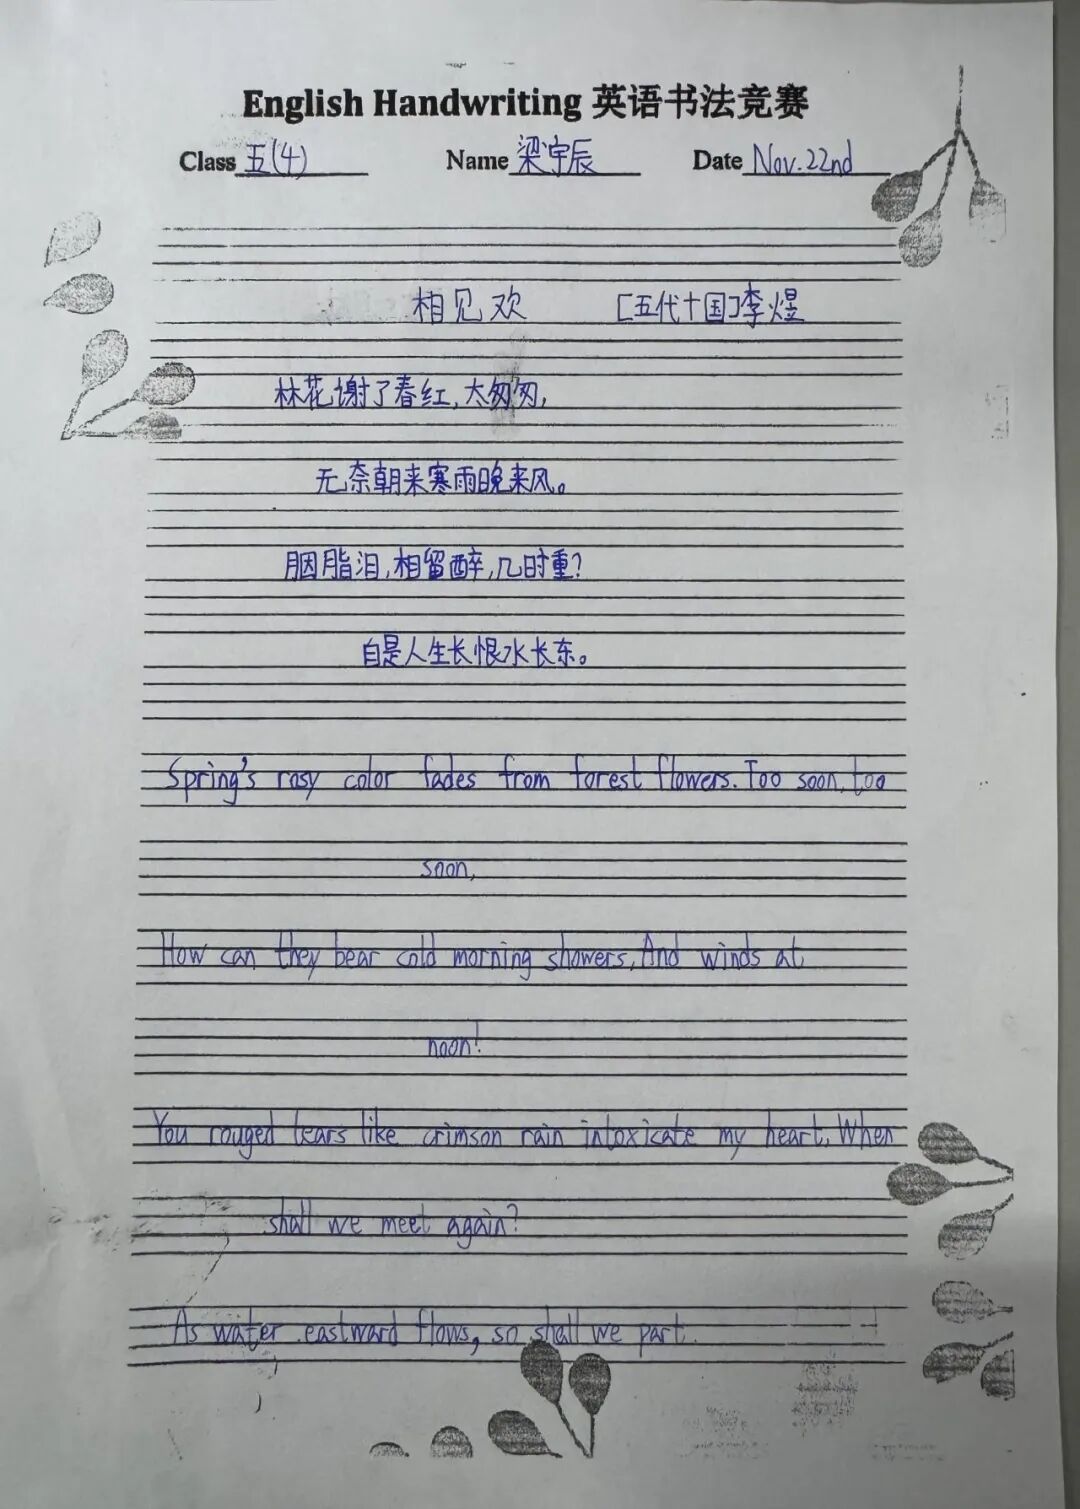 English Handwriting 英语书法竞赛
Class 五(4) Name 梁宇辰 Date Nov.22nd
相见欢 [五代十国]李煜
林花谢了春红,太匆匆,
无奈朝来寒雨晚来风。
胭脂泪,相留醉,几时重?
自是人生长恨水长东。
Spring's rosy color fades from forest flowers. Too soon, too
soon,
How can they bear cold morning showers, And winds at
noon!
You rouged tears like crimson rain intoxicate my heart, When
shall we meet again?
As water eastward flows, so shall we part.